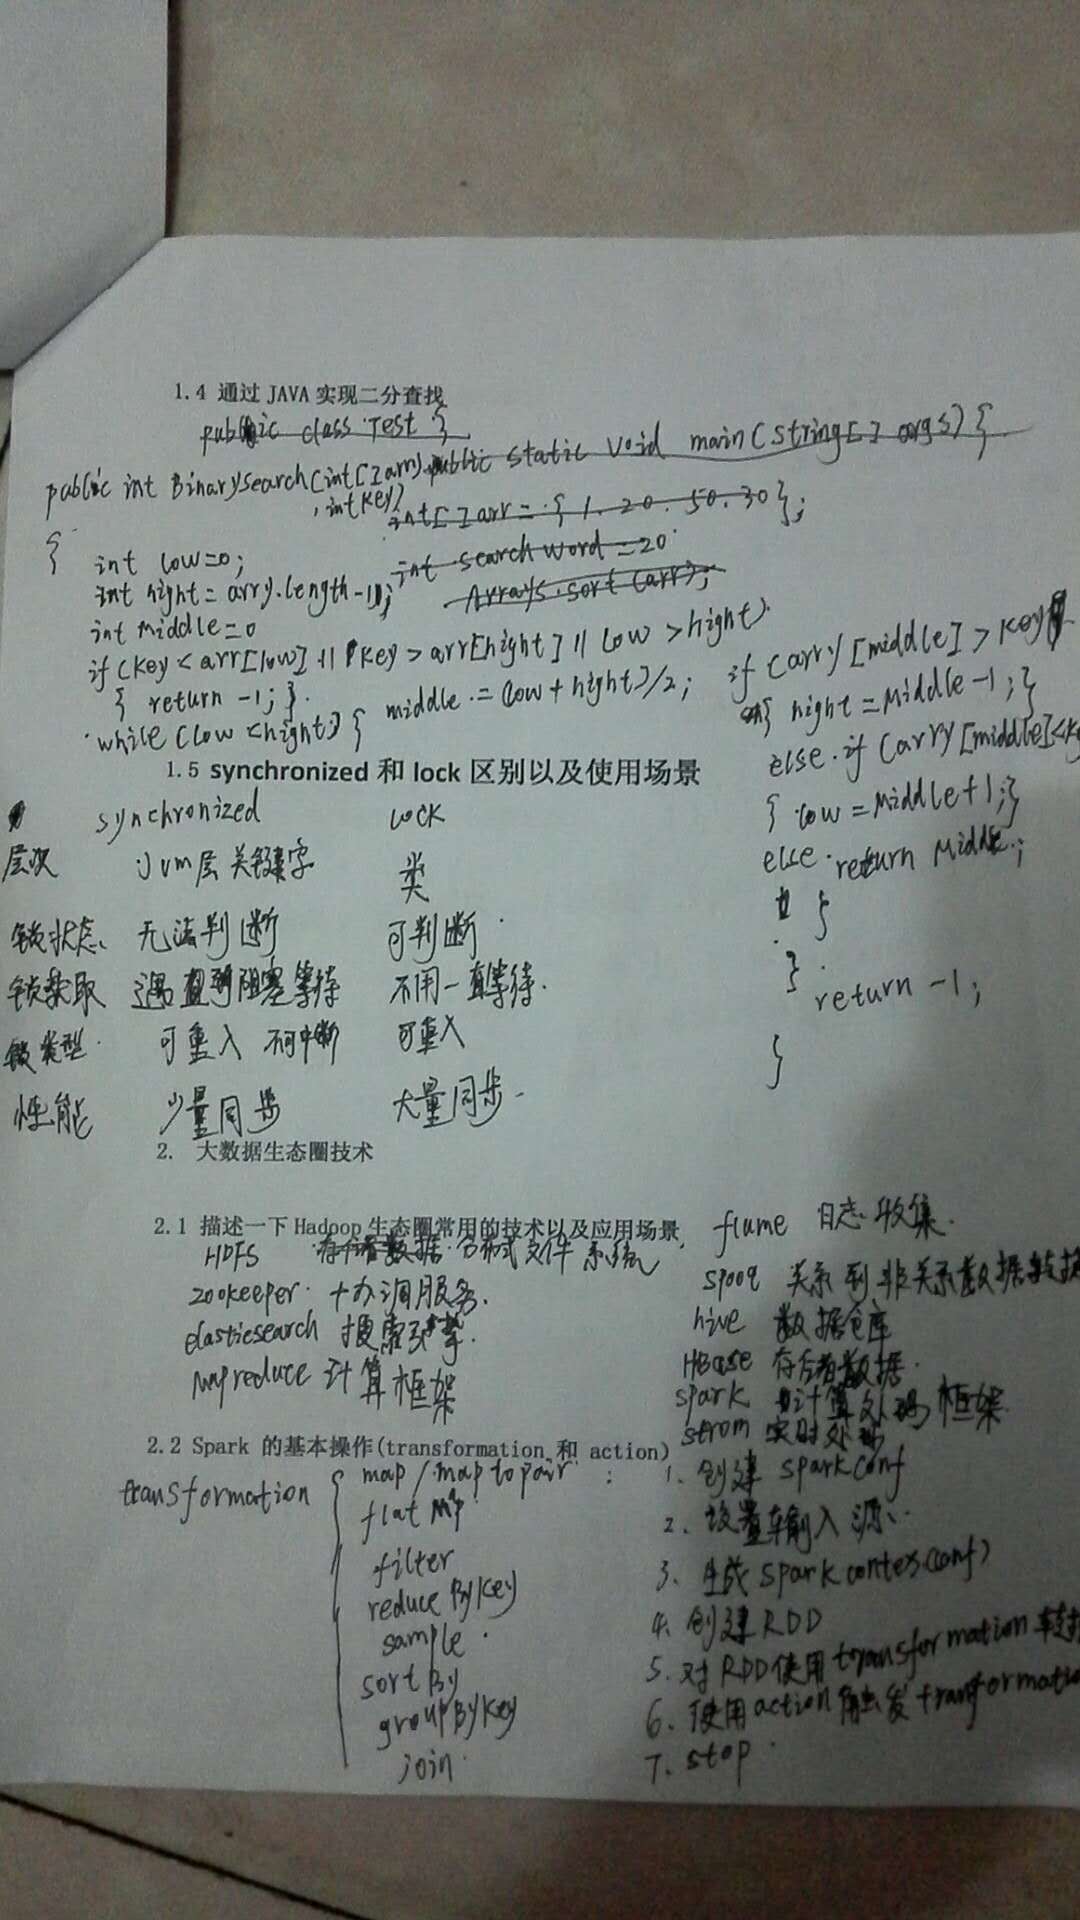 1.4 通过 JAVA 实现二分查找
public class Test {
public static void main(string[] args) {
public int Binarysearch(int[] arr
, int key)
int[] arr = { 1. 20. 50. 30 };
{ int low=0;
int search word = 20
int hight = arry.length-1;
Arrays.sort(arr);
int middle=0
if (key < arr[low] || key > arr[hight] || low > hight)
{ return -1; }
while (low < hight) { middle = (low + hight)/2;
if (arry[middle] > key
{ hight = Middle-1; }
else if (arry[middle]<ke
{ low = Middle+1; }
else return Middle;
}
}
return -1;
}
1.5 synchronized 和 lock 区别以及使用场景
synchronized lock
层次 Jvm层关键字 类
锁状态 无法判断 可判断
锁获取 遇 阻塞等待 不用一直等待.
锁类型 可重入 不可中断 可重入
性能 少量同步 大量同步
2. 大数据生态圈技术
2.1 描述一下 Hadoop 生态圈常用的技术以及应用场景
HDFS 分布式文件系统
zookeeper 协调服务.
elasticsearch 搜索引擎.
mapreduce 计算框架
flume 日志收集.
spooq 关系到非关系数据转换
hive 数据仓库
HBase 数据.
spark 计算 框架
strom 实时处理
2.2 Spark 的基本操作(transformation 和 action)
transformation { map / map to pair
flat Map
filter
reduce By Key
sample
sort By
group By Key
join
1. 创建 sparkconf
2. 设置输入源
3. 生成 spark contex(conf)
4. 创建 RDD
5. 对 RDD使用 transformation 转换
6. 使用action 触发 transformatio
7. stop